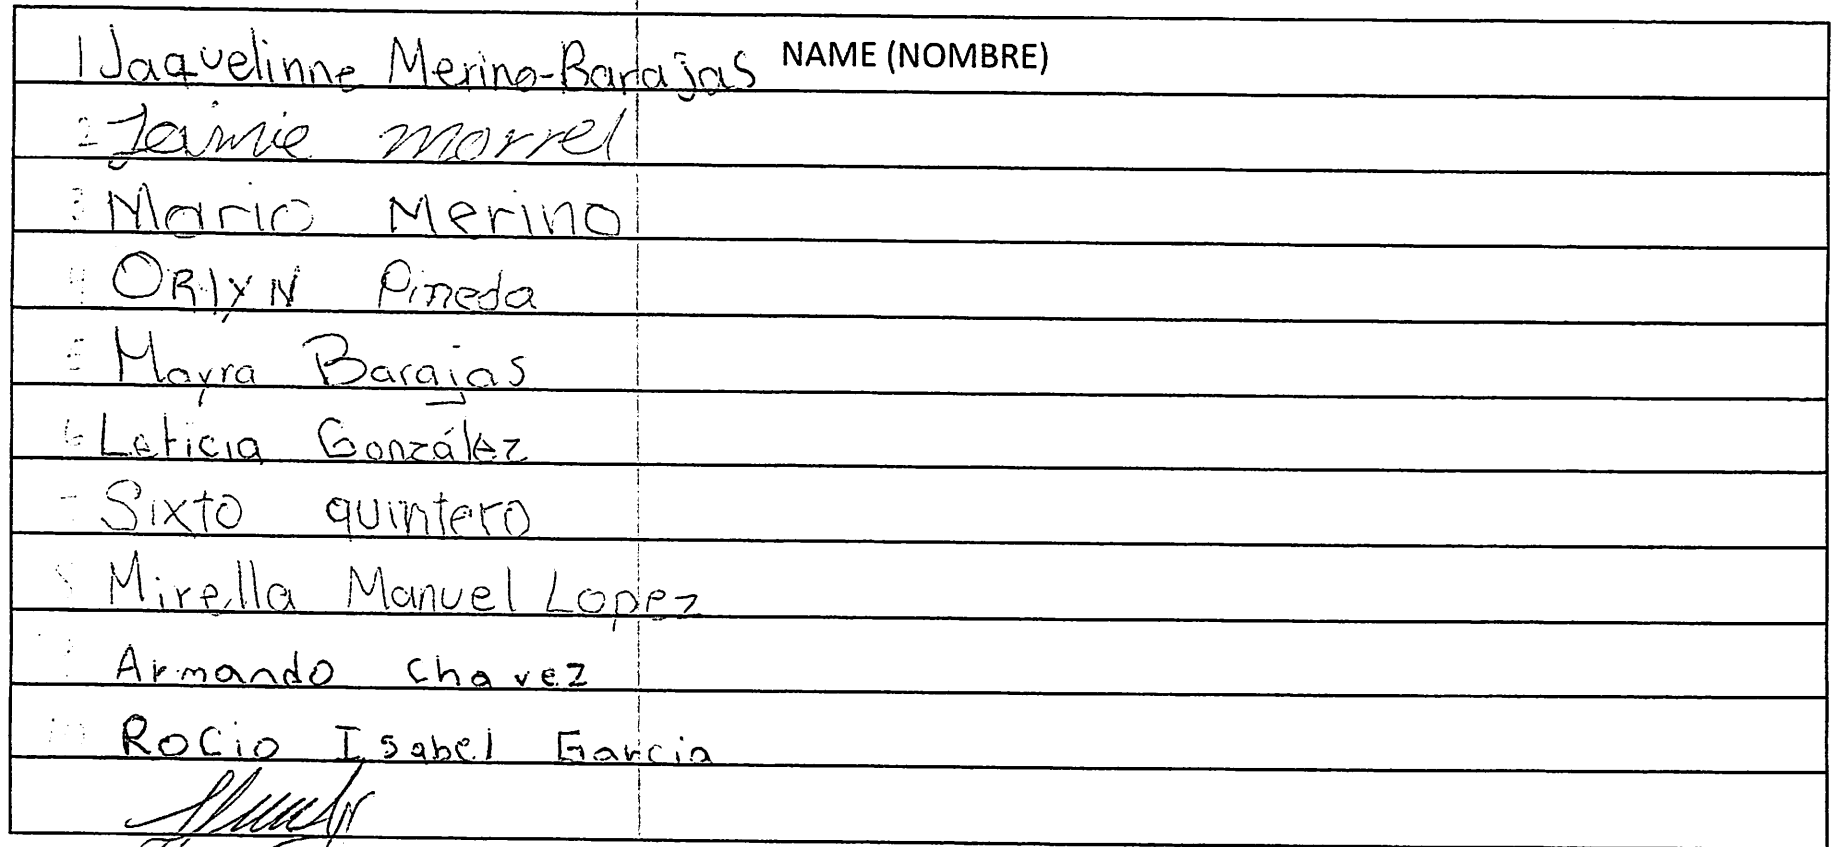 1 Jaquelinne Merino-Barajas NAME (NOMBRE)
2 Jaimie morrel
3 Mario Merino
4 ORlYN Pineda
5 Mayra Barajas
6 Leticia González
7 Sixto quintero
8 Mirella Manuel Lopez
Armando Chavez
10 ROCio Isabel Garcia